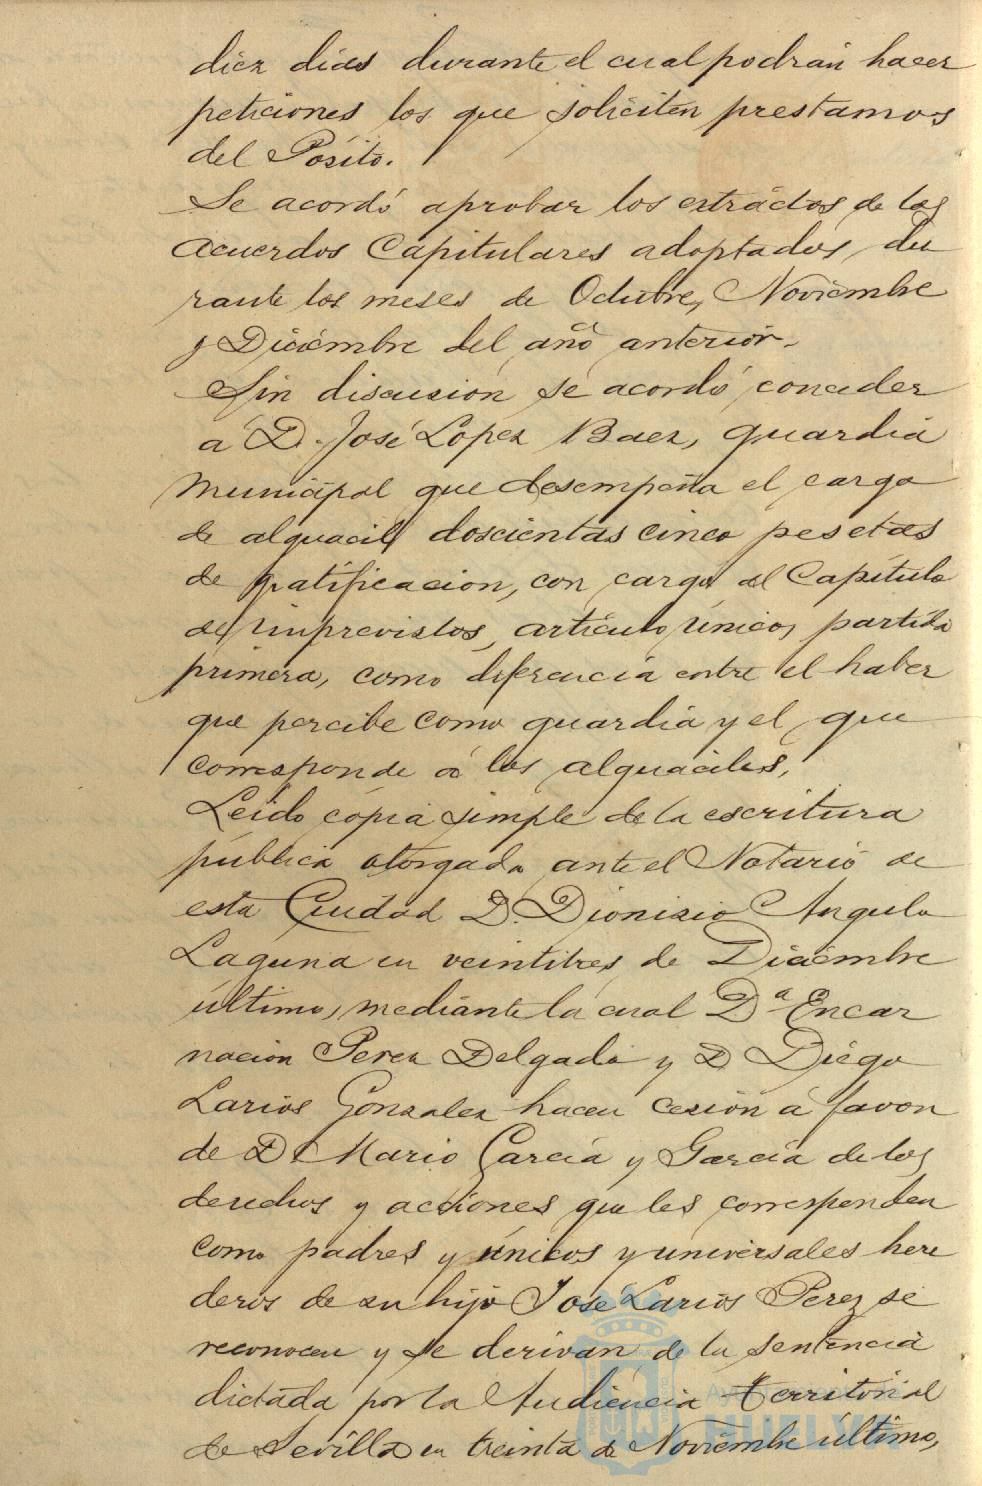 diez dias durante el cual podrán hacer
peticiones los que soliciten prestamos
del Pósito.
Se acordó aprobar los extractos de los
acuerdos Capitulares adoptados, du
rante los meses de Octubre, Noviembre
y Diciembre del año anterior.
Sin discusion se acordó conceder
á D. José Lopez Baez, guardia
municipal que desempeña el cargo
de alguacil, doscientas cinco pesetas
de gratificacion, con cargo al Capítulo
de Imprevistos, artículo único, partida
primera, como diferencia entre el haber
que percibe como guardia y el que
corresponde á los alguaciles.
Leido cópia simple de la escritura
pública otorgada ante el Notario de
esta Ciudad D. Dionisio Angulo
Laguna en veintitres de Diciembre
último, mediante la cual Dª Encar
nacion Perez Delgado y D Diego
Larios Gonzalez hacen cesión á favor
de D. Mario García y García de los
derechos y acciones que les corresponden
como padres y únicos y universales here
deros de su hijo José Larios Perez se
reconocen y se derivan de la sentencia
dictada por la Audiencia territorial
de Sevilla en treinta de Noviembre último,
AYUNTAMIENTO DE
HUELVA